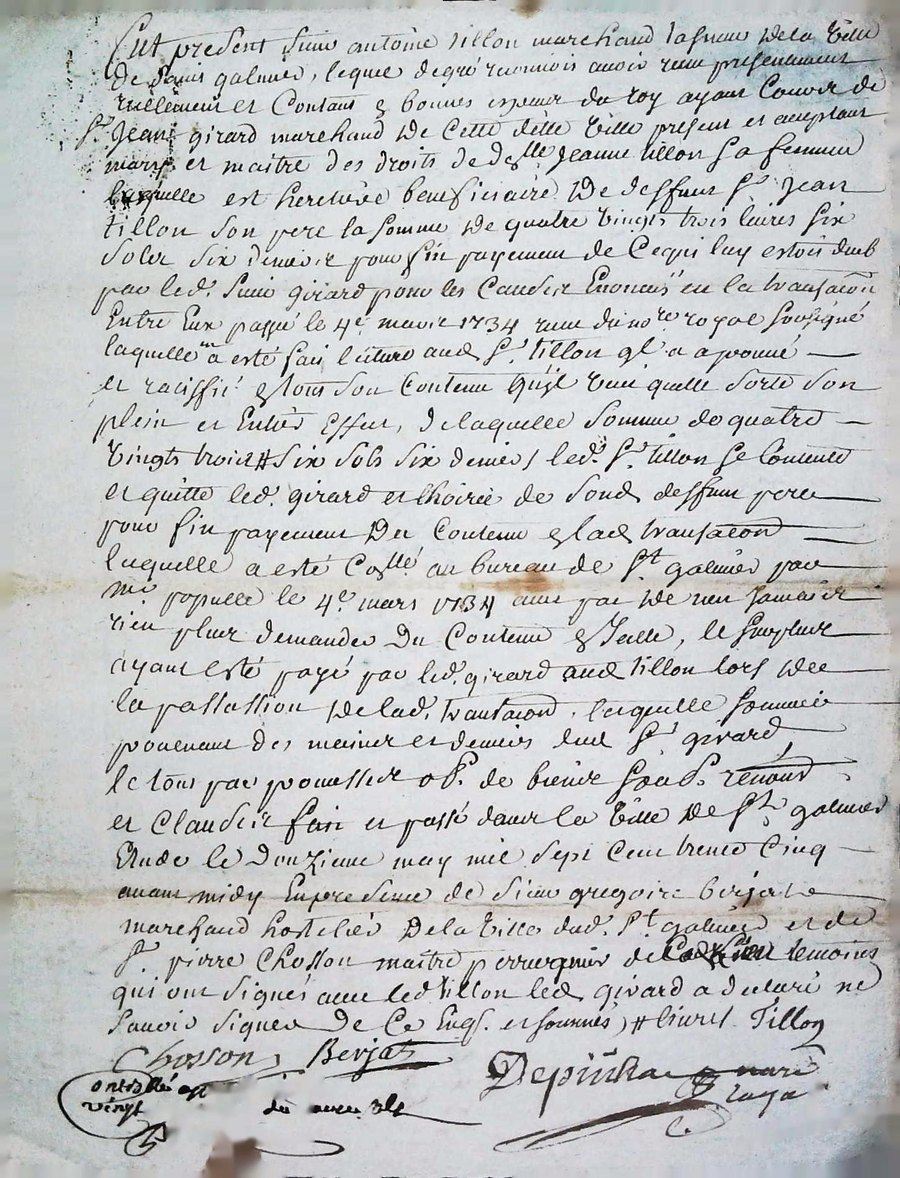 fut present sieur antoine tillon marchand tasneur de la ville
de saint galmier, lequel de gré reconnois avoir receu presentement
reellement et contant en bonnes especes du roy ayant cours de
sr. Jean girard marchand de cette ditte ville present et acceptant
mary et maitre des droits de dselle Jeanne tillon sa femme
laquelle est heretiere beneficiaire de deffunt sr. jean
tillon son pere la somme de quatre vingts trois livres six
sols six deniers pour fin payement de ce qui luy estois deub
par led. sieur girard pour les causes enoncées en la transacon
entre eux passé le 4e. mars 1734 receue du nore. royal soussigné
laquelle a esté fait lecture aud sr. tillon ql. a aprouvé
et ratiffié en tout son contenu veut quelle sorte son
plein et entier effet, de laquelle somme de quatre
vingts trois # six sols six deniers led. sr. tillon se contente
et quitte led. girard et lhoirie de sond deffunt pere
pour fin payement du contenu en lad transacon
laquelle a esté conllé au bureau de st galmier par
mr populle le 4e. mars 1734 avec pac de ne jamais
rien plus demander du contenu en icelle, le surplus
ayant esté payé par led. girard aud tillon lors de
la passassion de lad. transacon, laquelle somme
provenant des mesmes et deniers dud sr. girard
le tout par promesses ob. de biens soub. renond.
et clauses fait et passé dans la ville de st galmier
etude le douzieme may mil sept cent trente cinq
avant midy en presence de sieur gregoire berjat
marchand hostelier de la ville dud. st galmier et de
sr. pierre chosson maitre perruquier de lad ville temoins
qui ont signés avec led tillon led girard a declaré ne
savoir signer de ce enqs. et sommés, # livres Tillon
Chosson Berjat Depinha nore
royal
contrllé
vingt